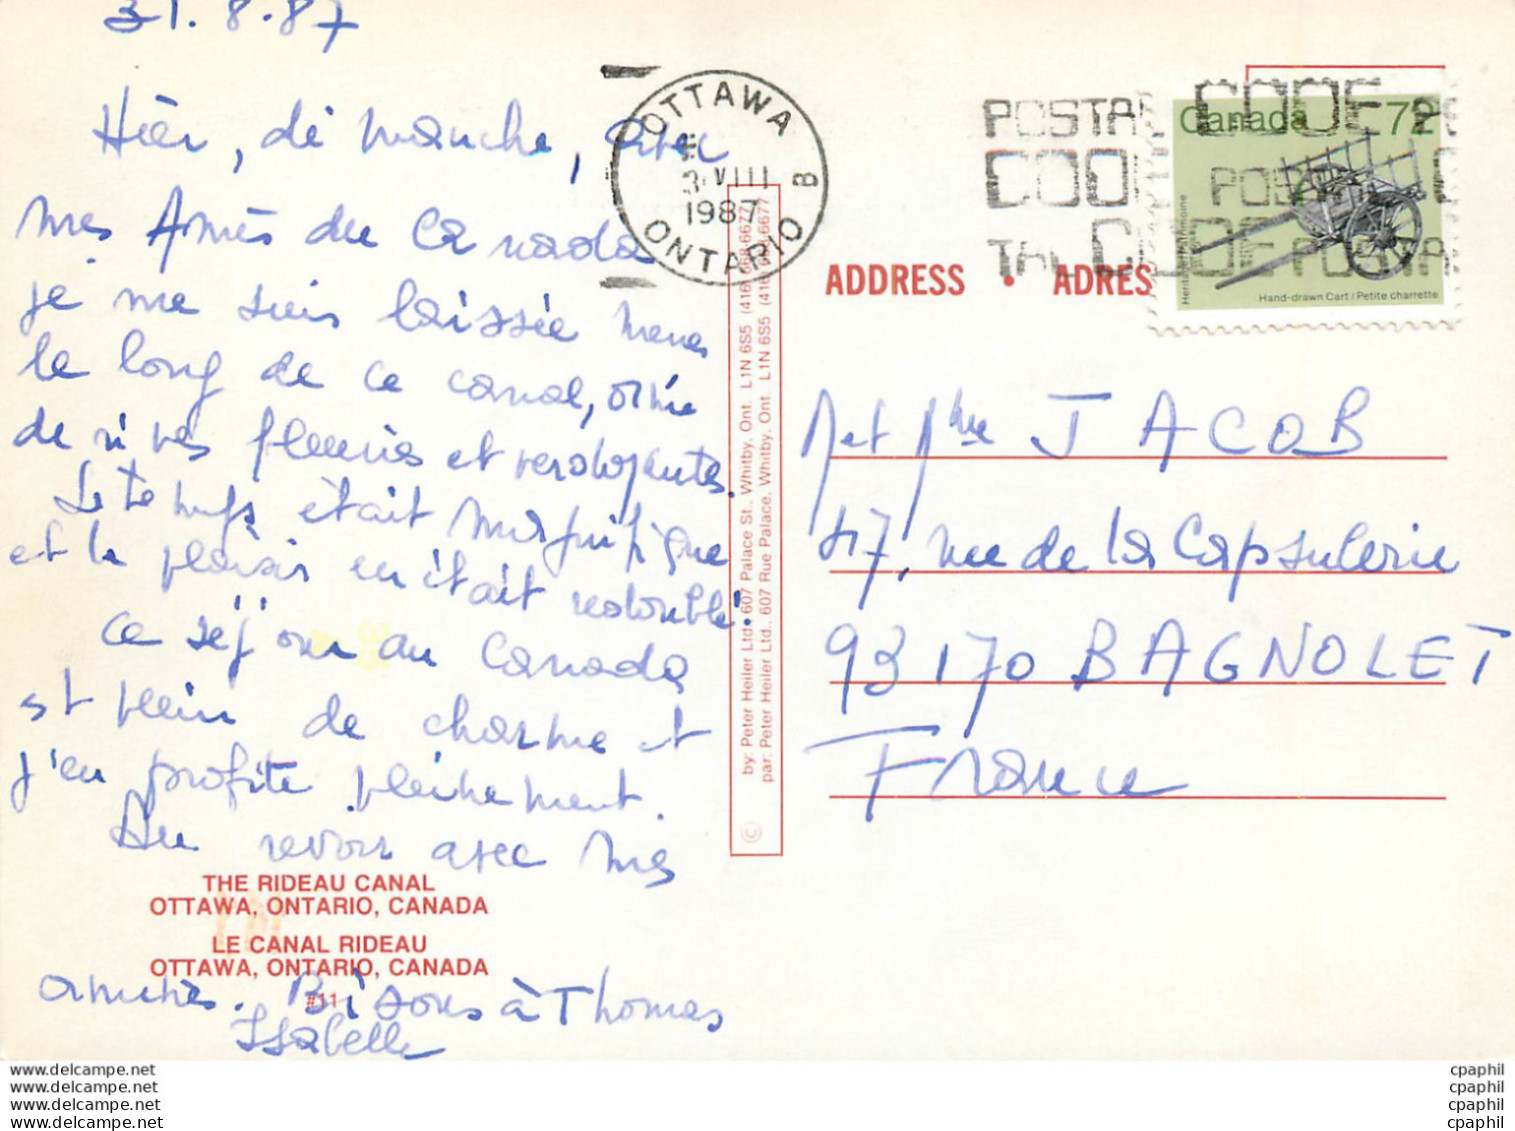 31.8.87
Hier, dimanche, avec
mes Amis du Canada
je me suis laissée menée
le long de ce canal, ornée
de rives fleuries et verdoyantes.
Le temps était magnifique
et le plaisir en était redoublé.
Ce séjour au Canada
est plein de charme et
j'en profite pleinement.
Au revoir avec mes
THE RIDEAU CANAL
OTTAWA, ONTARIO, CANADA
LE CANAL RIDEAU
OTTAWA, ONTARIO, CANADA
#11
amitiés. Bisous à Thomas
Isabelle
by: Peter Heiler Ltd. 607 Palace St., Whitby, Ont. L1N 6S5 (416) 668-6677
par: Peter Heiler Ltd., 607 Rue Palace, Whitby, Ont. L1N 6S5 (416) 668-6677
©
OTTAWA
B
VIII
1987
ONTARIO
POSTAL CODE
CODE POSTAL
Canada 72
Heritage/Patrimoine
Hand-drawn Cart / Petite charrette
ADDRESS • ADRES
M et Mme JACOB
47, rue de la Capsulerie
93170 BAGNOLET
France
www.delcampe.net
www.delcampe.net
www.delcampe.net
www.delcampe.net
cpaphil
cpaphil
cpaphil
cpaphil